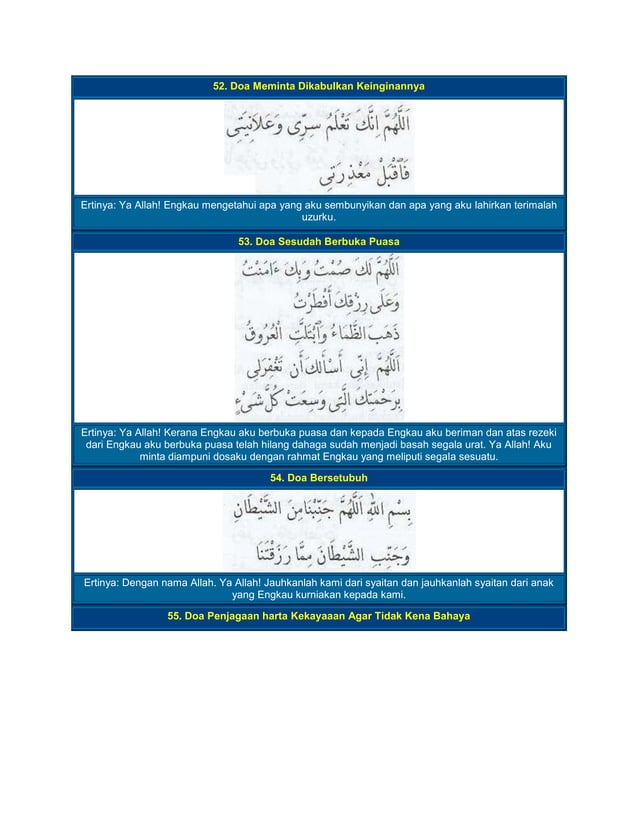 52. Doa Meminta Dikabulkan Keinginannya
اَللَّهُمَّ اِنَّكَ تَعْلَمُ سِرِّى وَعَلَانِيَتِى
فَاقْبَلْ مَعْذِرَتِى
Ertinya: Ya Allah! Engkau mengetahui apa yang aku sembunyikan dan apa yang aku lahirkan terimalah
uzurku.
53. Doa Sesudah Berbuka Puasa
اَللَّهُمَّ لَكَ صُمْتُ وَبِكَ ءَامَنْتُ
وَعَلَى رِزْقِكَ أَفْطَرْتُ
ذَهَبَ الظَّمَاءُ وَابْتَلَّتِ الْعُرُوقُ
اَللَّهُمَّ إِنِّى أَسْأَلُكَ أَن تَغْفِرَلِى
بِرَحْمَتِكَ الَّتِى وَسِعَتْ كُلَّ شَىْءٍ
Ertinya: Ya Allah! Kerana Engkau aku berbuka puasa dan kepada Engkau aku beriman dan atas rezeki
dari Engkau aku berbuka puasa telah hilang dahaga sudah menjadi basah segala urat. Ya Allah! Aku
minta diampuni dosaku dengan rahmat Engkau yang meliputi segala sesuatu.
54. Doa Bersetubuh
بِسْمِ اللهِ اَللَّهُمَّ جَنِّبْنَا مِنَ الشَّيْطَانِ
وَجَنِّبِ الشَّيْطَانَ مِمَّا رَزَقْتَنَا
Ertinya: Dengan nama Allah. Ya Allah! Jauhkanlah kami dari syaitan dan jauhkanlah syaitan dari anak
yang Engkau kurniakan kepada kami.
55. Doa Penjagaan harta Kekayaaan Agar Tidak Kena Bahaya